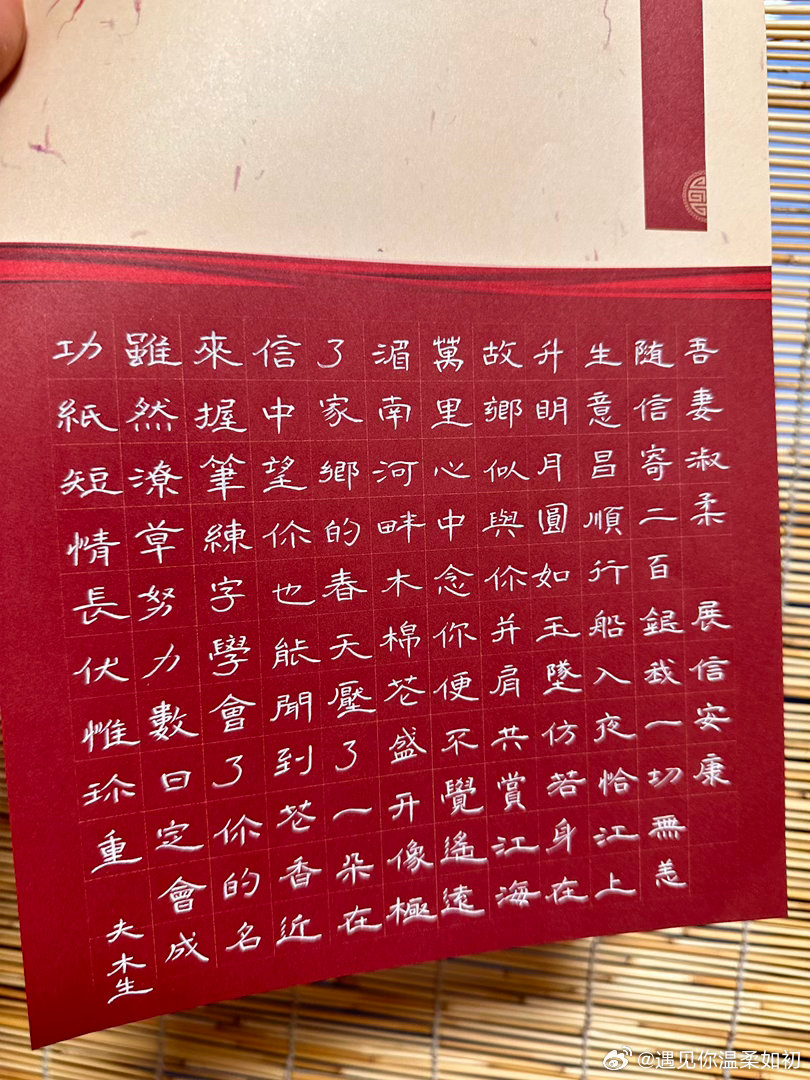 吾妻淑柔 展信安康
随信寄二百銀我一切無恙
生意昌順行船入夜恰江上
升明月圓如玉墜仿若身在
故鄉似與你并肩共賞江海
萬里心中念你便不覺遙遠
湄南河畔木棉花盛开像極
了家鄉的春天壓了一朵在
信中望你也能聞到花香近
來握筆練字學會了你的名
雖然潦草努力數日定會成
功紙短情長伏惟珍重
夫木生
@遇见你温柔如初